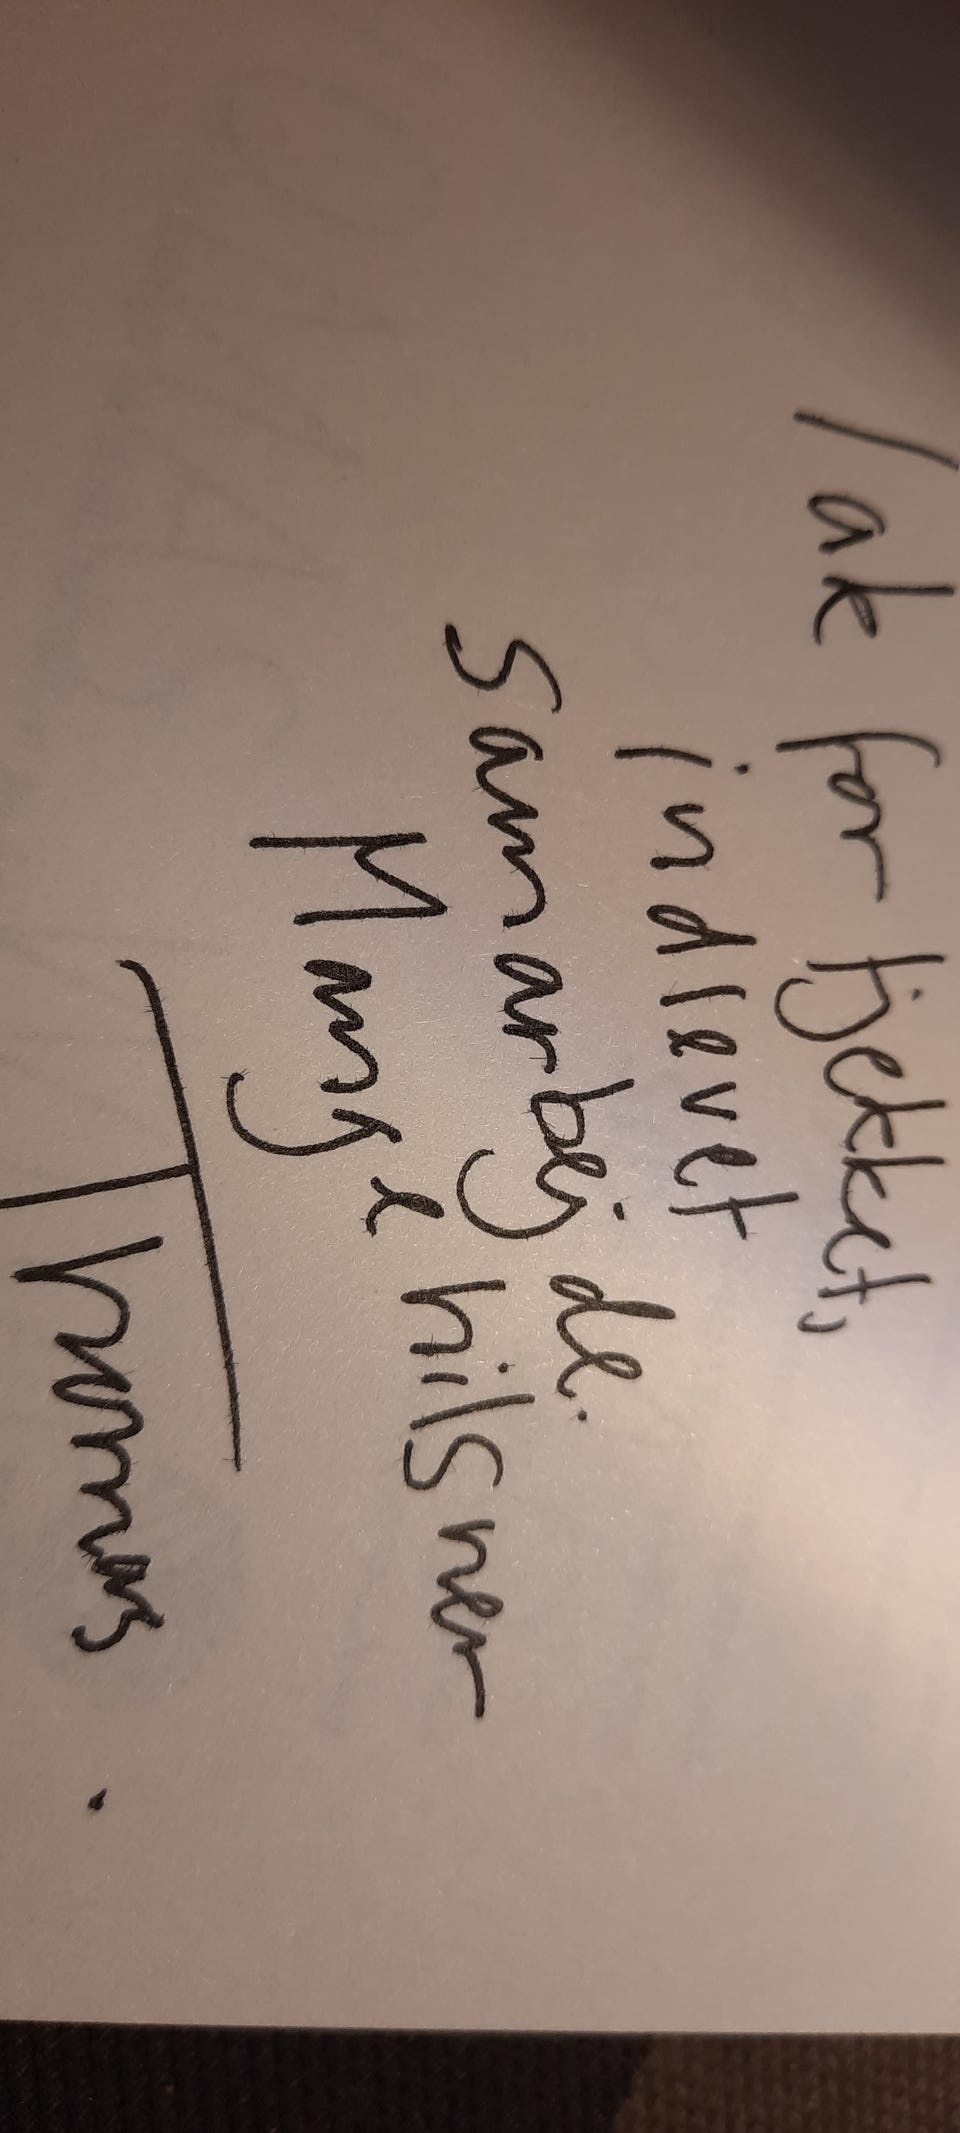 Tak for tjekket,
indlevet
samarbejde.
Mange hilsner
Thomas.